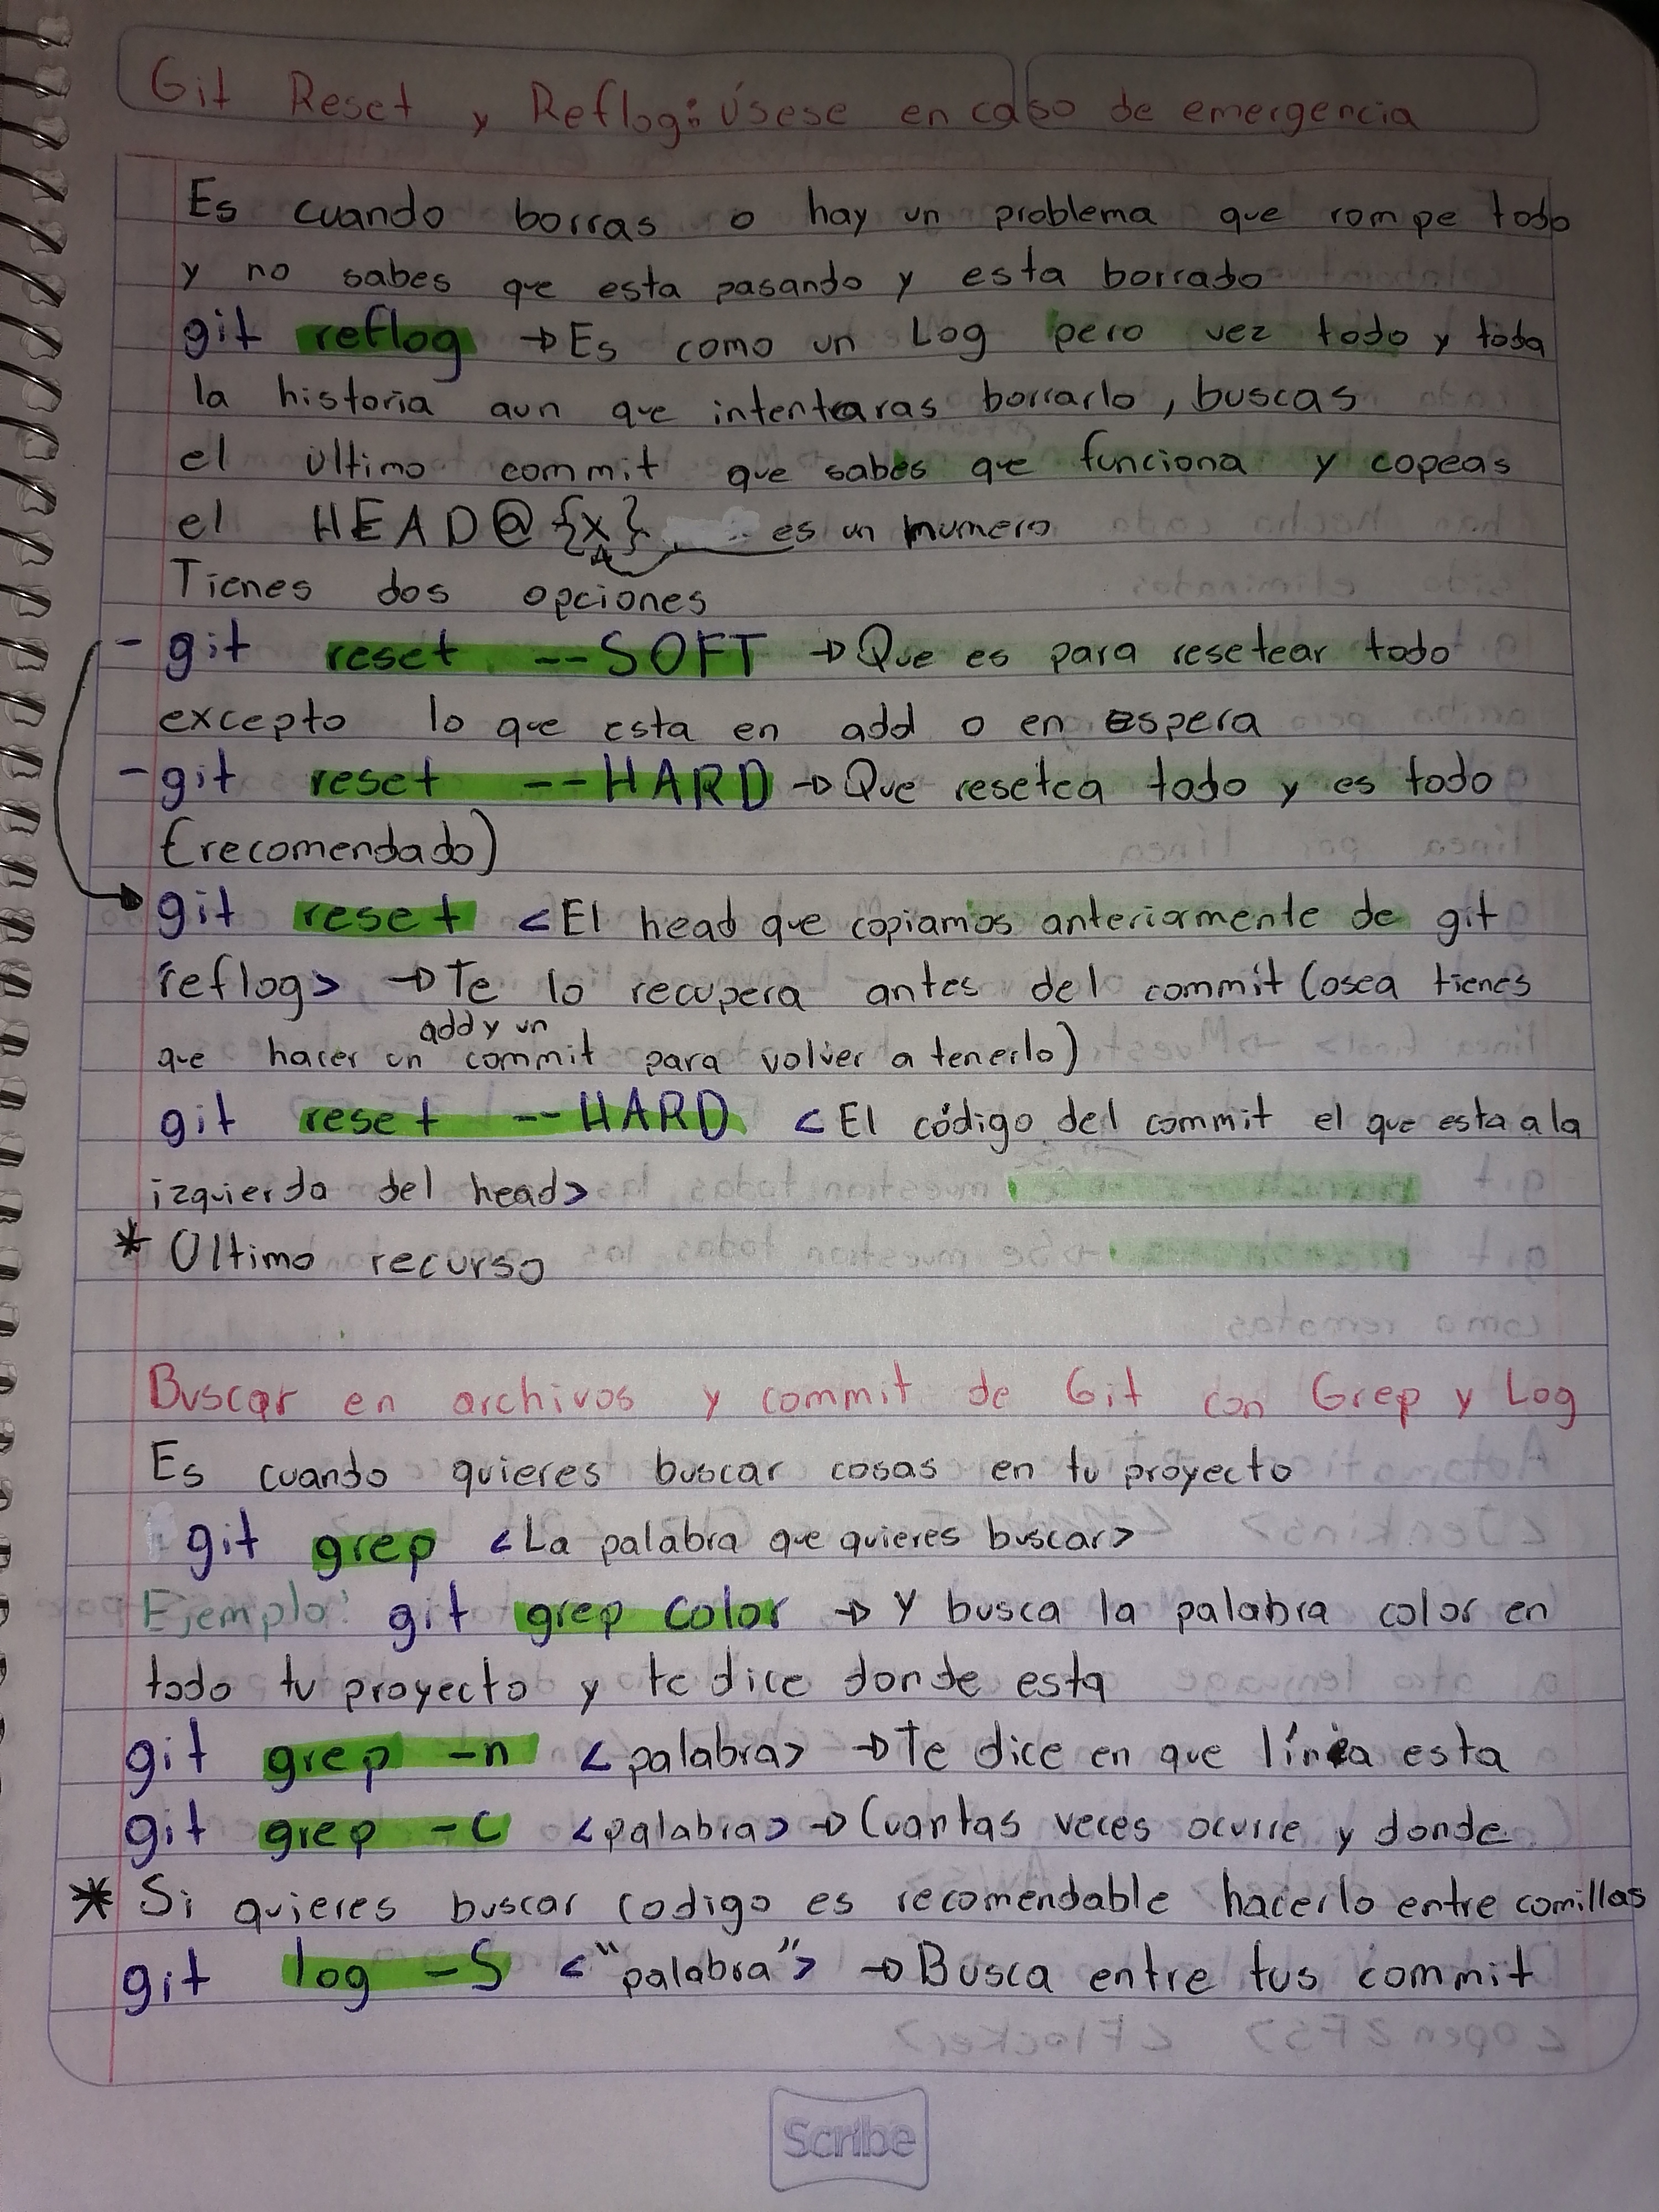 Git Reset y Reflog: úsese en caso de emergencia
Es cuando borras o hay un problema que rompe todo
y no sabes que esta pasando y esta borrado
git reflog → Es como un Log pero vez todo y toda
la historia aun que intentaras borrarlo, buscas
el ultimo commit que sabes que funciona y copeas
el HEAD@{x} es un numero
Tienes dos opciones
- git reset --SOFT → Que es para resetear todo
excepto lo que esta en add o en espera
- git reset --HARD → Que resetea todo y es todo
(recomendado)
git reset <El head que copiamos anteriormente de git
reflog> → Te lo recupera antes del commit (osea tienes
add y un
que hacer un commit para volver a tenerlo)
git reset --HARD <El código del commit el que esta a la
izquierda del head>
* Ultimo recurso
Buscar en archivos y commit de Git con Grep y Log
Es cuando quieres buscar cosas en tu proyecto
git grep <La palabra que quieres buscar>
Ejemplo: git grep color → Y busca la palabra color en
todo tu proyecto y te dice donde esta
git grep -n <palabra> → Te dice en que línea esta
git grep -c <palabra> → Cuantas veces ocurre y donde
* Si quieres buscar codigo es recomendable hacerlo entre comillas
git log -S <"palabra"> → Busca entre tus commit
Scribe